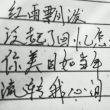 红雨瓢泼
泛起了回忆怎
你美目如当年
流转我心间